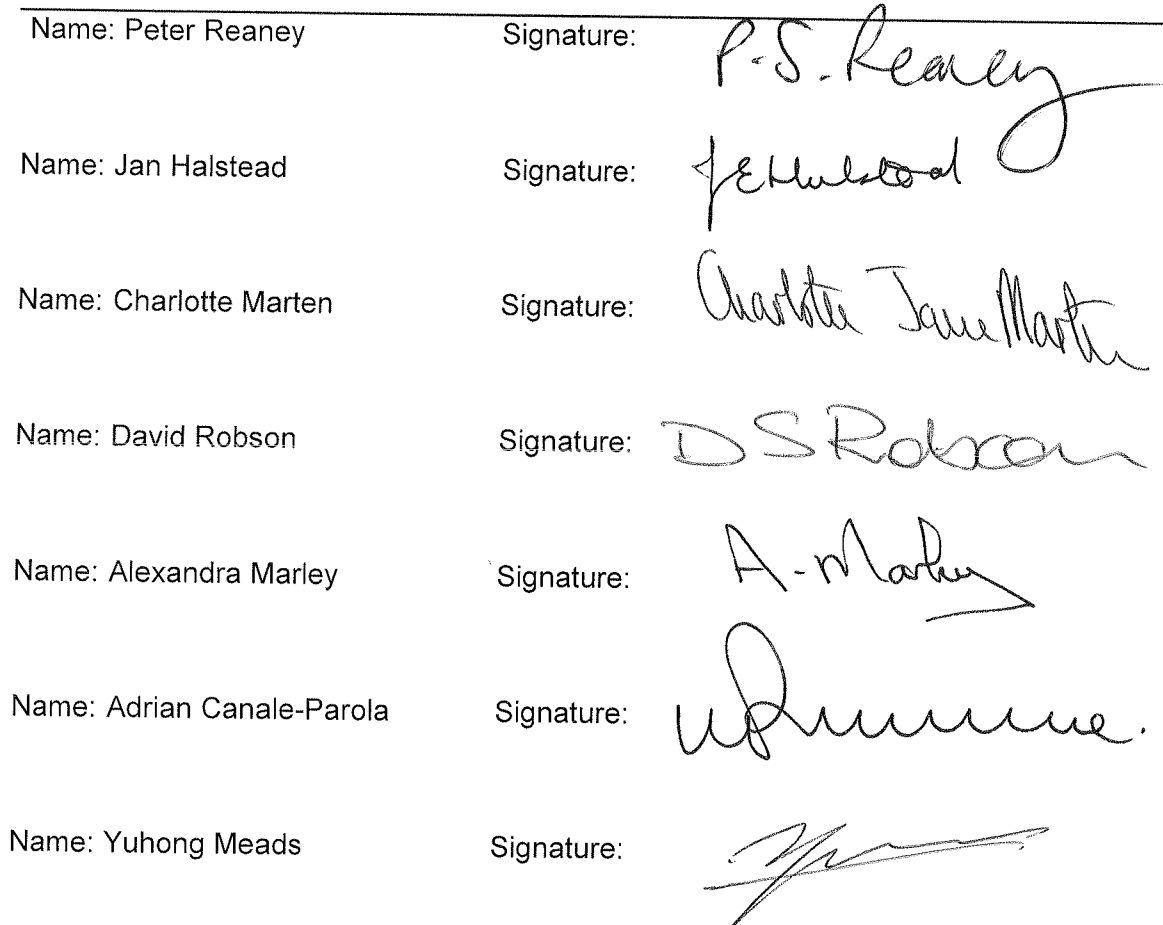 Name: Peter Reaney Signature: P.S. Reaney
Name: Jan Halstead Signature: J E Halstead
Name: Charlotte Marten Signature: Charlotte Jane Marten
Name: David Robson Signature: D S Robson
Name: Alexandra Marley Signature: A. Marley
Name: Adrian Canale-Parola Signature:
Name: Yuhong Meads Signature: